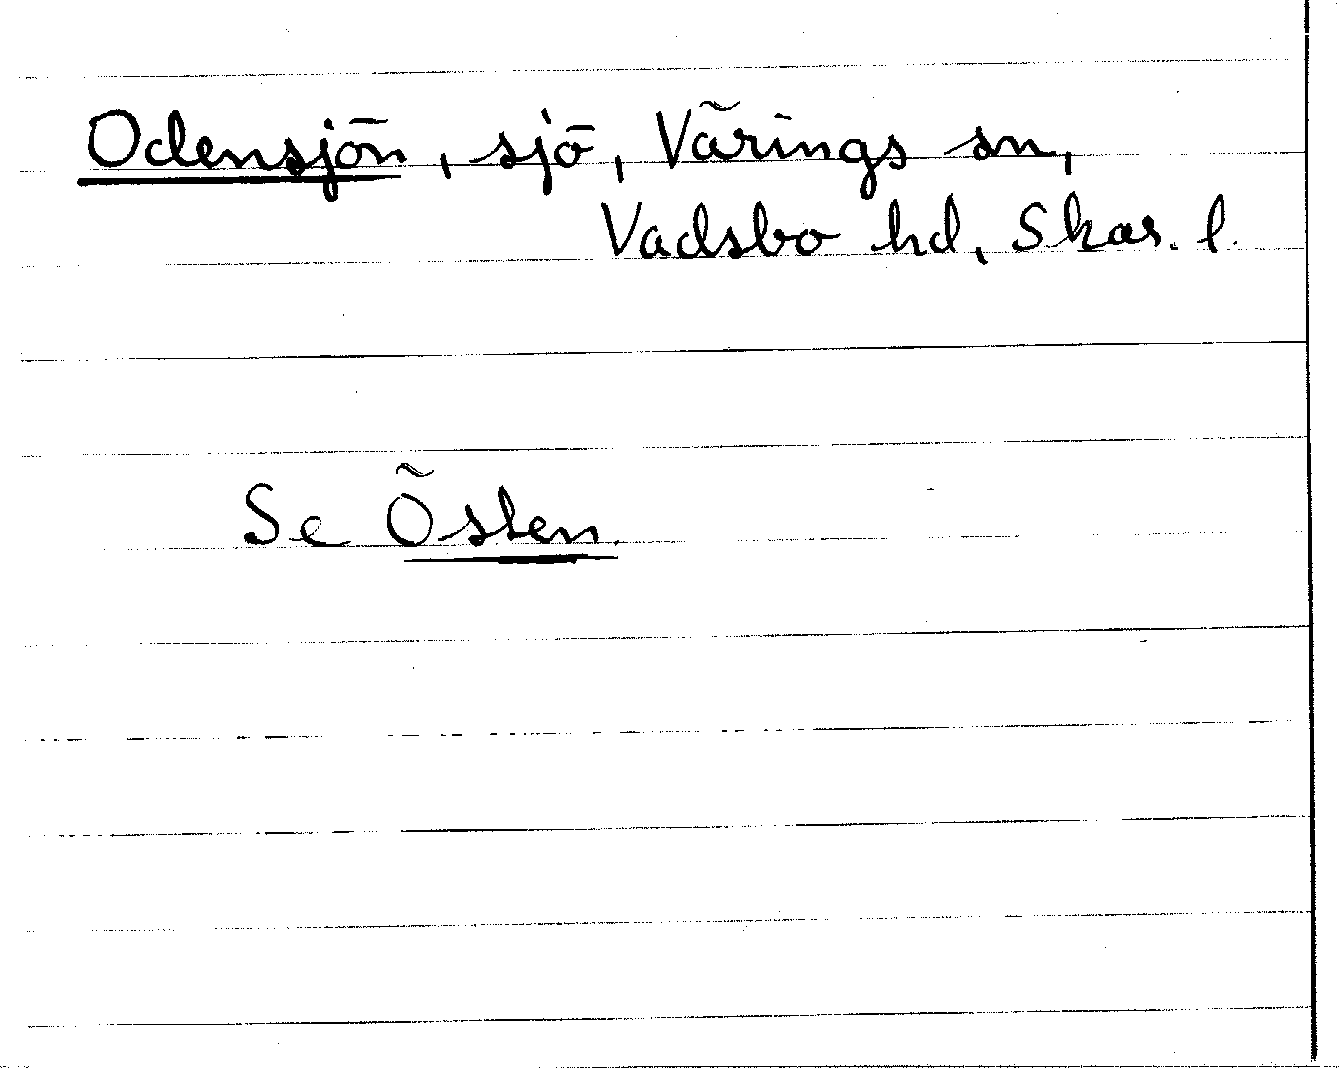 Odensjön, sjö, Värings sn,
Vadsbo hd, Skar. l.
Se Östen.